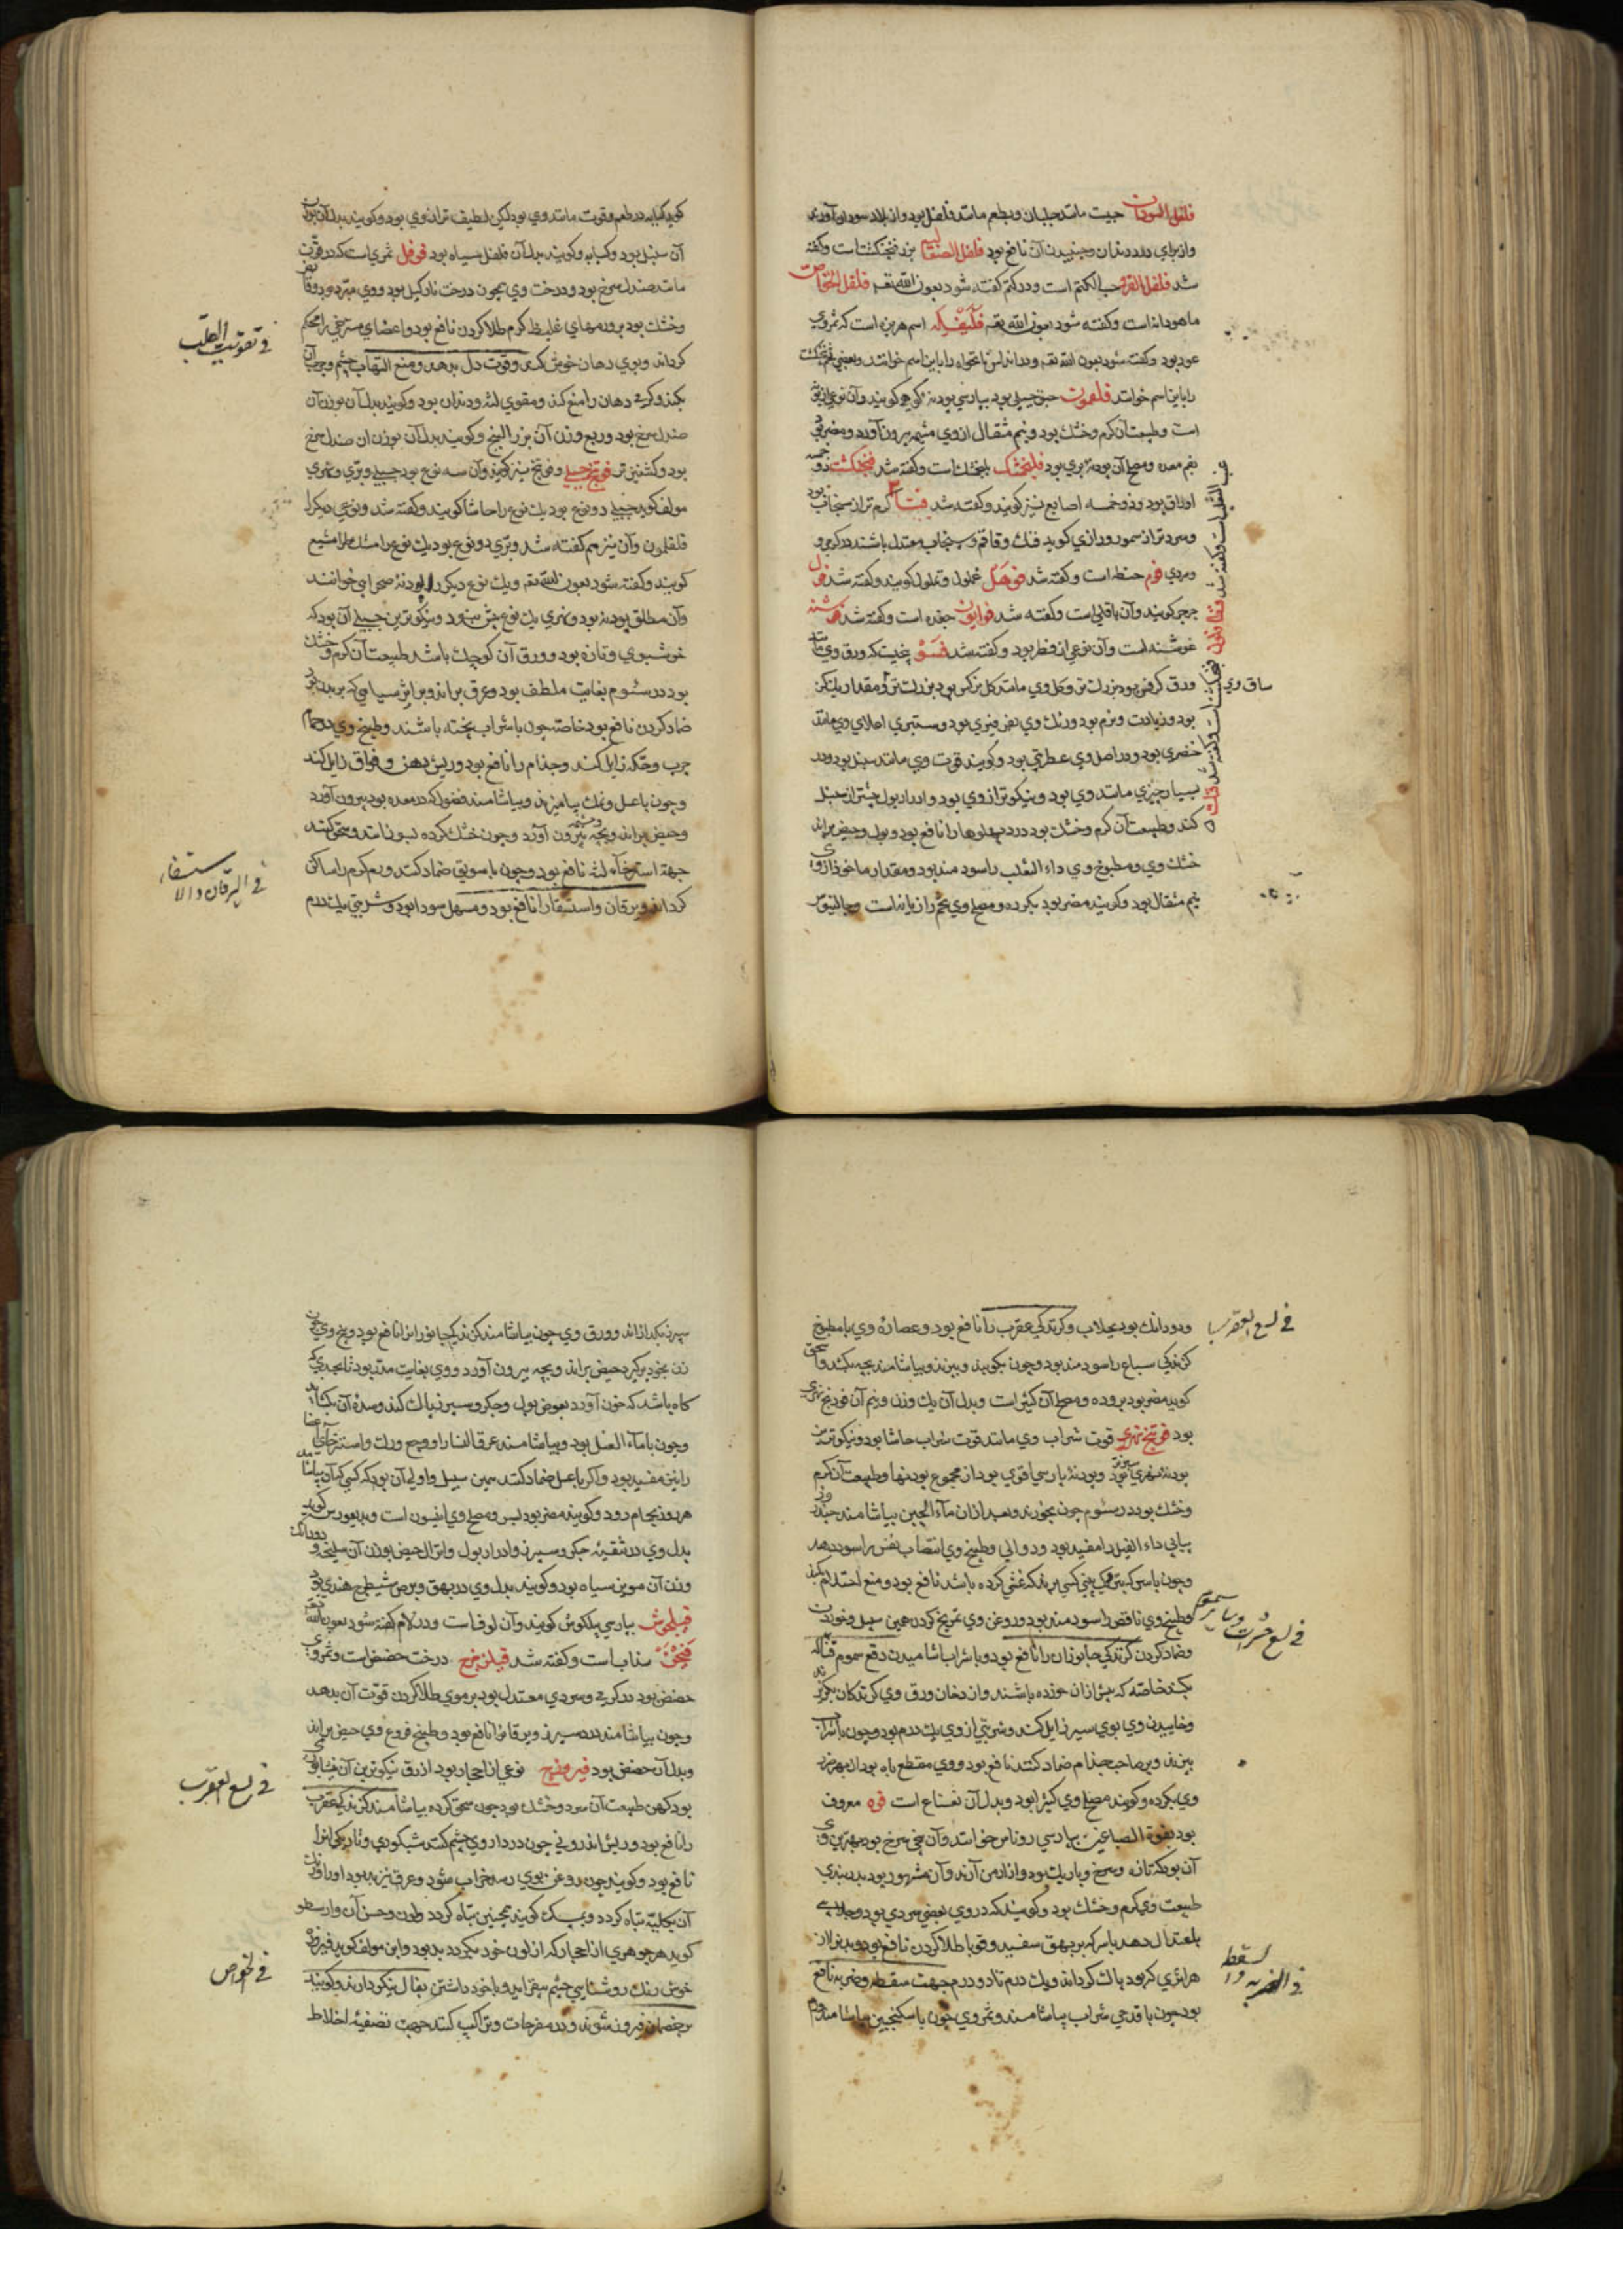 فلفل السودان حبیت مانند جلبان و بطعم مانند فلفل بود و از بلاد سودان آورند
و از برای درد دندان و جنبیدن آن نافع بود فلفل الصقالیه بزر فنجنکشت است و کفته
شد فلفل القرود حب الکتم است و در کتم کفته شود بعون الله تعه فلفل الخواص
ماهودانه است و کفته شود بعون الله تعه فلیفله اسم هرین است که ثمروی
عود بود و کفته شود بعون الله تعه و در اندلس نانخواه را باین اسم خوانند و بعضی فنجنکشت
را باین اسم خوانند فلغموت حبق جبلی بود بپارسی پودنه کوهی کویند و آن نوعی از
است و طبیعت آن کرم و خشک بود و نیم مثقال از وی مشیمه بیرون آورد و مضر بود
بفم معده و مصلح آن پودنه بری بود فلنجمشک بلنجمشک است و کفته شد فنجنکشت ذو خمسه
اوراق بود و ذو خمسه اصابع نیز کویند و کفته شد فنک کرم تر از سنجاب بود
و سرد تر از سمور و رازی کوید فنک و قاقم و سنجاب معتدل باشند در کرمی و
سردی فوم حنطه است و کفته شد فوهل غملول و تملول کویند و کفته شد فول
جرجر کویند و آن باقلی است و کفته شد فوانیون جعده است و کفته شد فوشنه
غوشنه است و آن نوعی از فطر بود و کفته شد فو بیخیست که ورق وی مانند
ورق کرفس بود بزرک تر و کل وی مانند کل نرکس بود بزرکتر و مقدار یک کز
بود و زیادت و نرم بود و رنک وی بنفرفیری بود و ستبری اعلای وی مانند
خنصری بود و در اصل وی عطریتی بود و کویند قوت وی مانند سنبل بود در
بسیار چیزی مانند وی بود و نیکوتر از وی بود و ادرار بول بیشتر از سنبل
کند و طبیعت آن کرم و خشک بود درد پهلوها را نافع بود و بول و حیض براند
خشک وی و مطبوخ وی داء الثعلب را سودمند بود و مقدار ماخوذ از وی
نیم مثقال بود و کویند مضر بود بکرده و مصلح وی تخم رازیانه است و جالینوس
ساق وی
کوید کبابه در طعم و قوت مانند وی بود لکن لطیف تر از وی بود و کویند بدل آن بوزن
آن سنبل بود و کبابه و کویند بدل آن فلفل سیاه بود فوفل ثمری است که در قوت
مانند صندل سرخ بود و درخت وی همچون درخت نارکیل بود و وی مبرد بود و قابض
و خشک بود بر ورمهای غلیظ کرم طلا کردن نافع بود و اعضای مسترخی را محکم
کرداند و بوی دهان خوش کند و قوت دل بدهد و منع التهاب چشم و جرب آن
بکند و کرمی دهان را منع کند و مقوی لثه و دندان بود و کویند بدل آن بوزن آن
صندل سرخ بود و ربع وزن آن بزر البنج و کویند بدل آن بوزن آن صندل سرخ
بود و کشنیز تر فوتنج جبلی و فوتنج نیز کویند و آن سه نوع بود جبلی و بری و نهری
مولف کوید جبلی دو نوع بود یک نوع را حاشا کویند و کفته شد و نوعی دیکر را
فلفلمون و آن نیز هم کفته شد و بری دو نوع بود یک نوع را مشکطرامشیع
کویند و کفته شود بعون الله تعه و یک نوع دیکر را پودنه صحرایی خوانند
و آن مطلق پودنه بود و نهری یک نوع بیش نبود و نیکوترین جبلی آن بود که
خوشبوی و تازه بود و ورق آن کوچک باشد طبیعت آن کرم و خشک
بود در سئوم بغایت ملطف بود و عرق براند و بر اثر سیاهی که بر بدن بود
ضماد کردن نافع بود خاصه چون با شراب پخته باشند و طبیخ وی در حمام
جرب و حکه زایل کند و جذام را نافع بود و ریش دهن و فواق زایل کند
و چون با عسل و نمک بیامیزند و بیاشامند فضول که در معده بود بیرون آورد
و حیض براند و بچه و مشیمه بیرون آورد و چون خشک کرده بسوزانند و سحق کنند
جهة استرخاء لثه نافع بود و چون با سویق ضماد کنند ورم کرم را ساکن
کرداند و یرقان و استسقا را نافع بود و مسهل سودا بود و شربتی یک درم
فی تقویت القلب
فی الیرقان و الاستسقاء
و دو دانک بود بجلاب و کزندکی عقرب را نافع بود و عصاره وی با مطبوخ
کزندکی سباع را سودمند بود و چون بکوبند و ببزند و بیاشامند بچه بکشد و اسحق
کوید مضر بود بروده و مصلح آن کثیراست و بدل آن یک وزن و نیم آن فودنج نهری
بود فوتنج نهری قوت شراب وی مانند قوت شراب حاشا بود و نیکوترین
پودنه نهری بود و پودنه پارسی اقوی بود از مجموع پودنها و طبیعت آن کرم
و خشک بود در سئوم چون بخورند و بعد از آن ماء الجبن بیاشامند چند روز
پیاپی داء الفیل را مفید بود و دوالی و طبیخ وی انتصاب نفس را سود دهد
و چون با سرکه بتر کنی و ببینی کسی برند که غشی کرده باشد نافع بود و منع احتلام بکند
و طبیخ وی ناقض را سودمند بود و روغن وی تمریخ کردن همین سبیل و خوردن
و ضماد کردن کزندکی جانوران را نافع بود و با شراب اشامیدن دفع سموم قتاله
بکند خاصه که پیش از آن خورده باشند و از دخان ورق وی کزندکان بکریزند
و خاییدن وی بوی سیر زایل کند و شربتی از وی یک درم بود و چون با شراب
بپزند و بر صاحب جذام ضماد کنند نافع بود و وی مقطع باه بود از بهر ضرر
وی بکرده و کویند مصلح وی کثیرا بود و بدل آن نعناع است فوه معروف
بود بفوة الصباغین بپارسی روناس خوانند و آن بیخی سرخ بود بهترین وی
آن بود که تازه و سرخ و باریک بود و از ارمن آرند و آن مشهور بود بدربندی
طبیعت وی کرم و خشک بود و کویند که در وی بعضی سردی بود و جلایی
باعتدال دهد با سرکه بر بهق سفید و قوبا طلا کردن نافع بود و بدن را از
هر اثری که بود پاک کرداند و یک درم تا دو درم جهت سقطه و ضربه نافع
بود چون با قدحی شراب بیاشامند و ثمر وی چون با سکنجبین بیاشامند ورم
فی لسع العقرب
فی لسع حشرات و سایر سموم
فی الضربه و السقطه
سپرز بکدازاند و ورق وی چون بیاشامند کزندکی جانوران را نافع بود و بیخ وی چون
زن بخود برکیرد حیض براند و بچه بیرون آورد و وی بغایت مدر بود تا بحدی که
کاه باشد که خون آورد بعوض بول و جکر و سپرز پاک کند و سده آن بکشاید
و چون با ماء العسل بود و بیاشامند عرق النسا را و وجع ورک و استرخای اعضا
را بغایت مفید بود و اکر با عسل ضماد کنند همین سبیل و اولی آن بود که کسی که آن بیاشامد
هر روز بحمام رود و کویند مضر بود بسر و مصلح وی انیسون است و دیسقوریدس کوید
بدل وی در تنقیه جکر و سپرز و ادرار بول و انزال حیض بوزن آن سلیخه و دو دانک
وزن آن مویز سیاه بود و کویند بدل وی در بهق و برص شیطرج هندی بود
فیلجوش بپارسی پیلکوش کویند و آن لوف است و در لام کفته شود بعون الله تعه
فیجن سداب است و کفته شد فیلزهرج درخت حضض است و ثمر وی
حضض بود در کرمی و سردی معتدل بود بر موی طلا کردن قوت آن بدهد
و چون بیاشامند درد سپرز و یرقان را نافع بود و طبیخ فروع وی حیض براند
و بدل آن حضض بود فیروزج نوعی از احجار بود ازرق نیکوترین آن نیشابوری
بود کهن طبیعت آن سرد و خشک بود چون سحق کرده بیاشامند کزندکی عقرب
را نافع بود و ریش اندرونی چون در داروی چشم کنند شبکوری و تاریکی آنرا
نافع بود و کویند چون روغن بوی رسد خراب شود و عرق نیز بد بود او را و رنک
آن بکلیه تباه کردد و بمسک کویند همچنین تباه کردد و لون و حسن آن و ارسطو
کوید هر جوهری از احجار که از لون خود بکردد بد بود و ابن مولف کوید فیروزه
خوش رنک روشنایی چشم بیفزاید و با خود داشتن بفال نیکو دارند و کویند
بر خصمان فیروز شوند و در مفرحات و تراکیب کنند جهت تصفیه اخلاط
فی لسع العقرب
فی الخواص